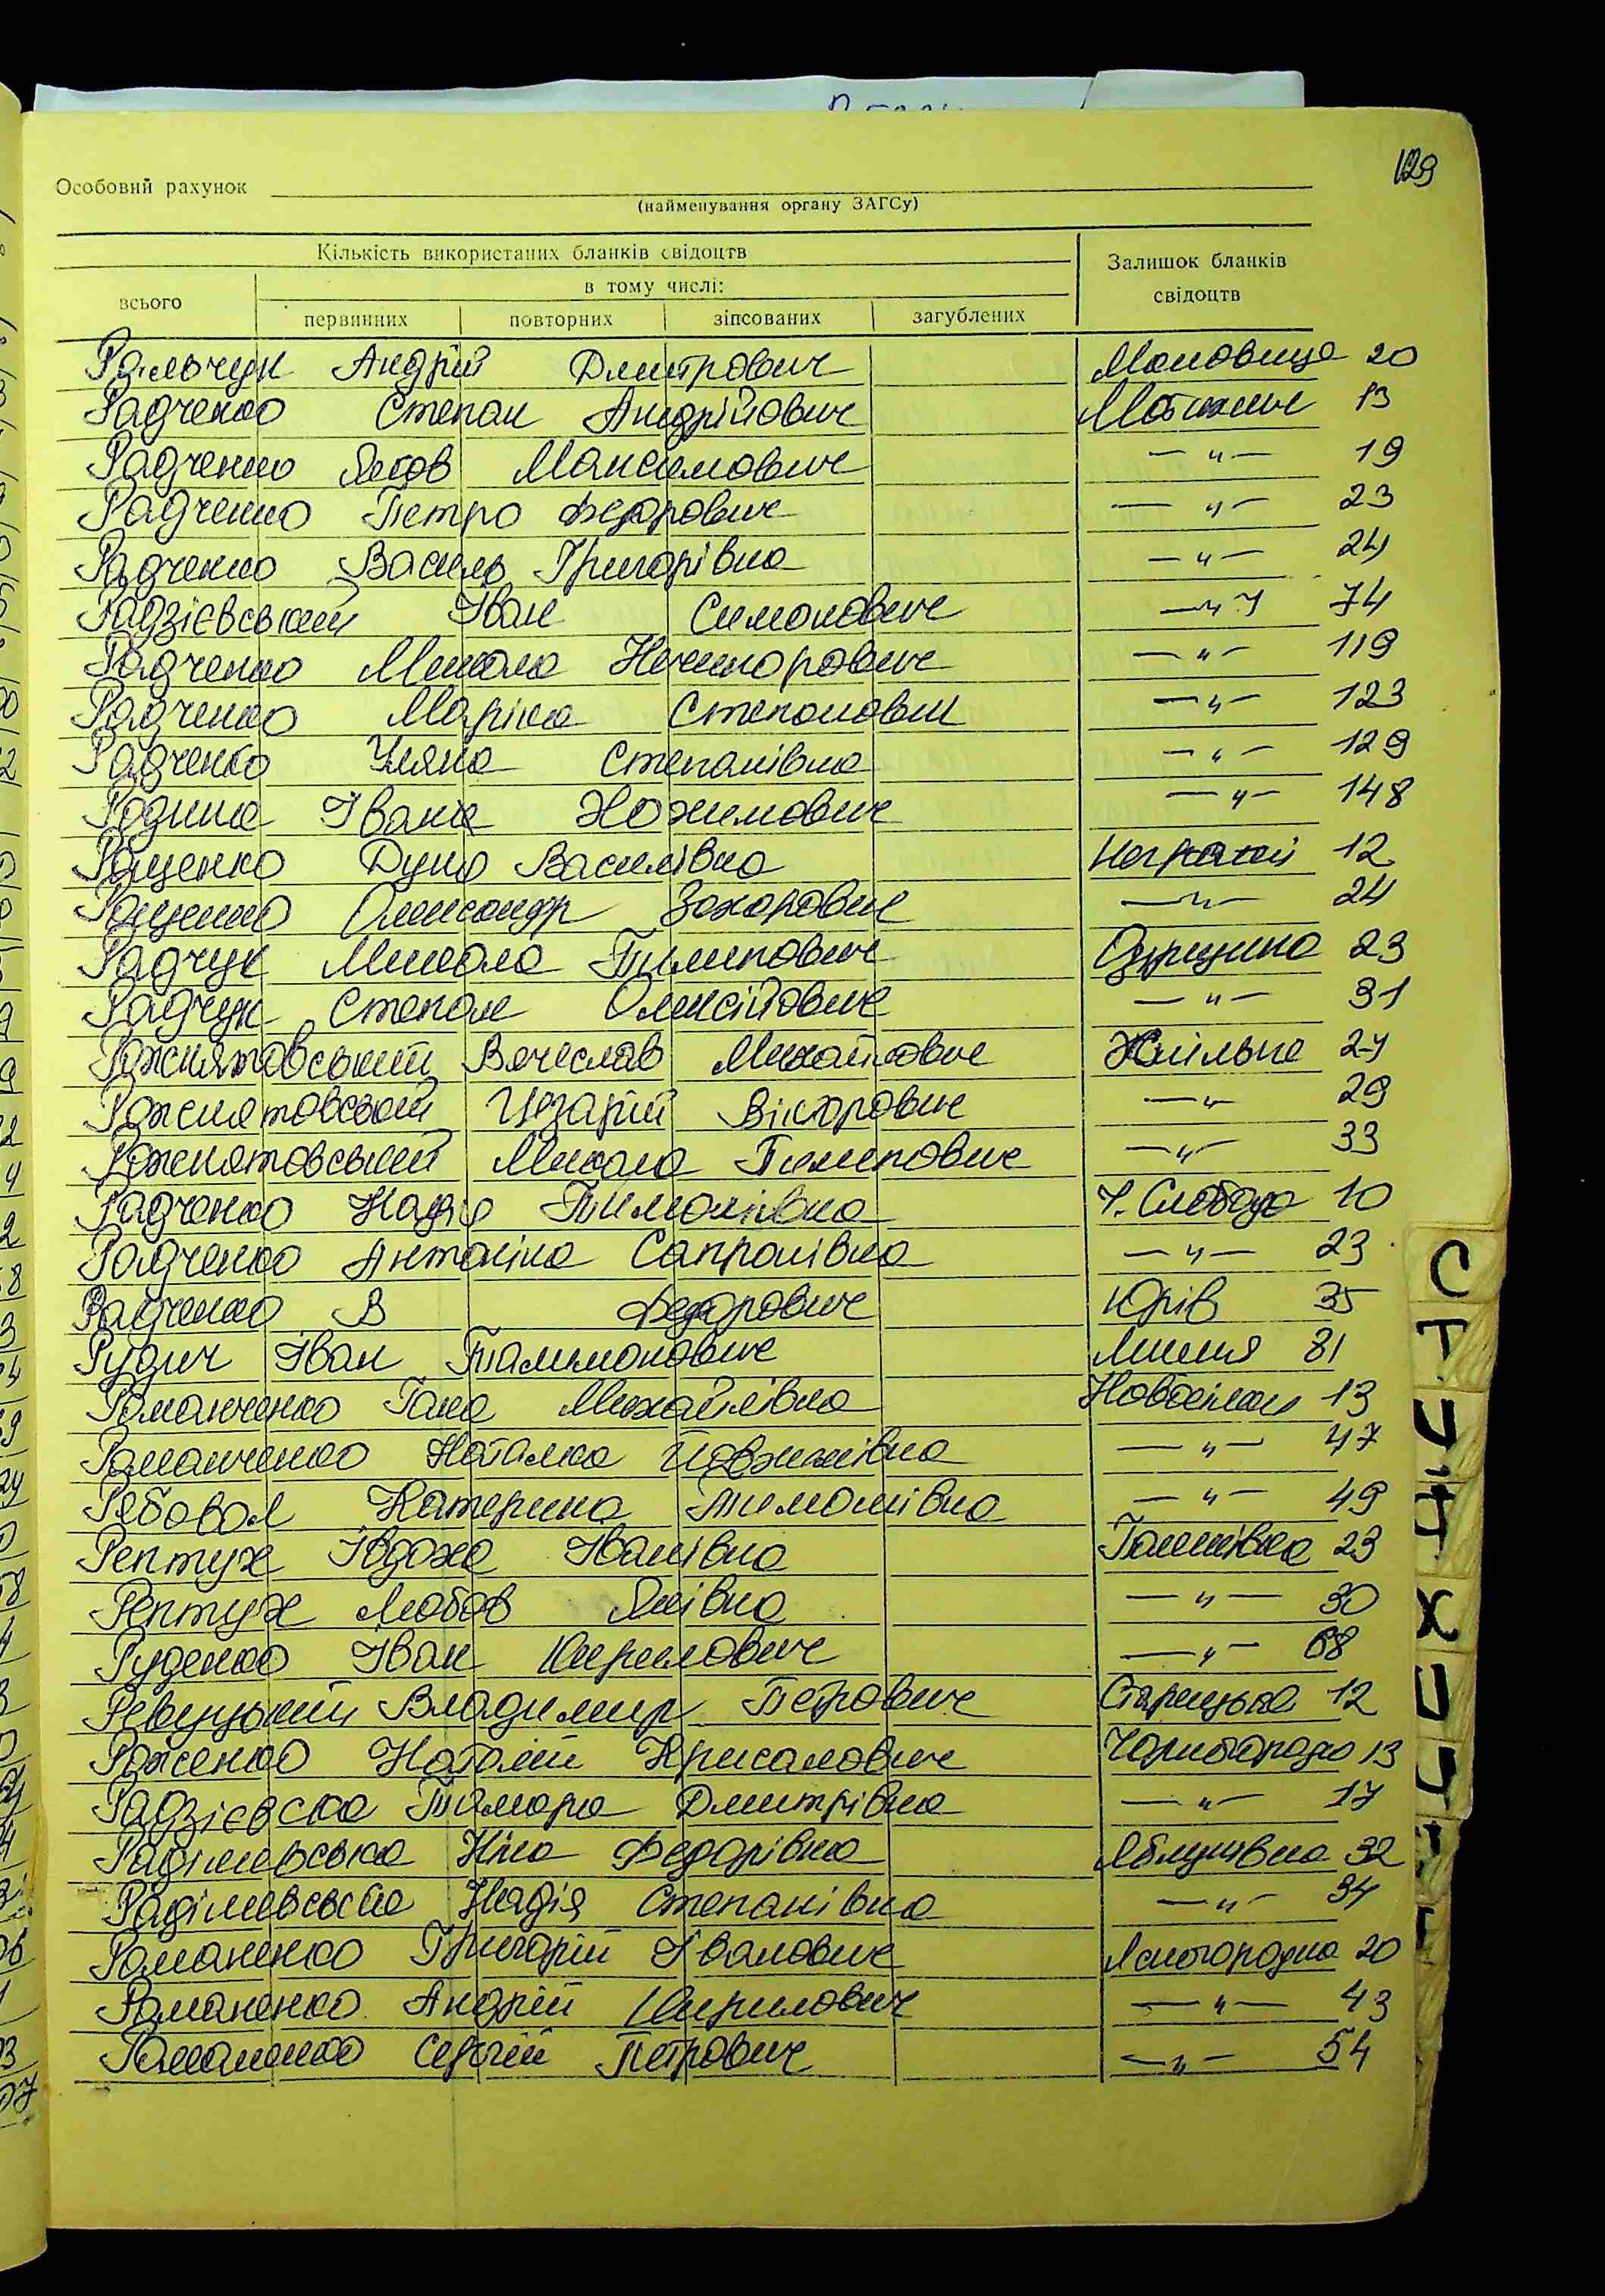 129
Особовий рахунок
(найменування органу ЗАГСу)
Кількість використаних бланків свідоцтв
Залишок бланків свідоцтв
всього
в тому числі:
первинних повторних зіпсованих загублених
Ральчук Андрій Дмитрович Маковище 20
Радченко Степан Андрійович Мотижин 13
Радченко Яков Максимович —〃— 19
Радченко Петро Федорович —〃— 23
Радченко Василь Григорівна —〃— 24
Радзієвський Іван Симонович —〃— 74
Радченко Микола Ничипорович —〃— 119
Радченко Маріка Степанович —〃— 123
Радченко Уляна Степанівна —〃— 129
Родина Івана —〃— 148
Ращенко Дуня Василівна Неграші 12
Ращенко Олександр Захарович —〃— 24
Радчук Микола Пилипович 23
Радчук Степан Олексійович —〃— 31
Рожнятовський Вячеслав Михайлович 24
Рожнятовський Цезарій Вікторович —〃— 29
Рожнятовський Микола Пилипович —〃— 33
Радченко Надія Тимофіївна Ч. Слобода 10
Радченко Антоніна Сапронівна —〃— 23
Радченко В Федорович Юрів 35
Рудич Іван Палимонович Липня 81
Романченко Гана Михайлівна 13
Романченко Наталка —〃— 47
Рябовол Катерина Тимошівна —〃— 49
Рептух Івдоха Іванівна Ганнівка 23
Рептух Любов Яківна —〃— 30
Руденко Іван Кирилович —〃— 68
Ревуцький Владимир Петрович 12
Роженко Наталій Крисанович Чорногородка 13
Радзієвска Тамара Дмитрівна —〃— 17
Радімовська Ніна Федорівна Яблунівка 32
Радімовська Надія Степанівна —〃— 34
Романенко Григорій Іванович Ясногородка 20
Романенко Андрій Кирилович —〃— 43
Романенко Сергій Петрович —〃— 54
С
Т
У
Х
Ц
Ч